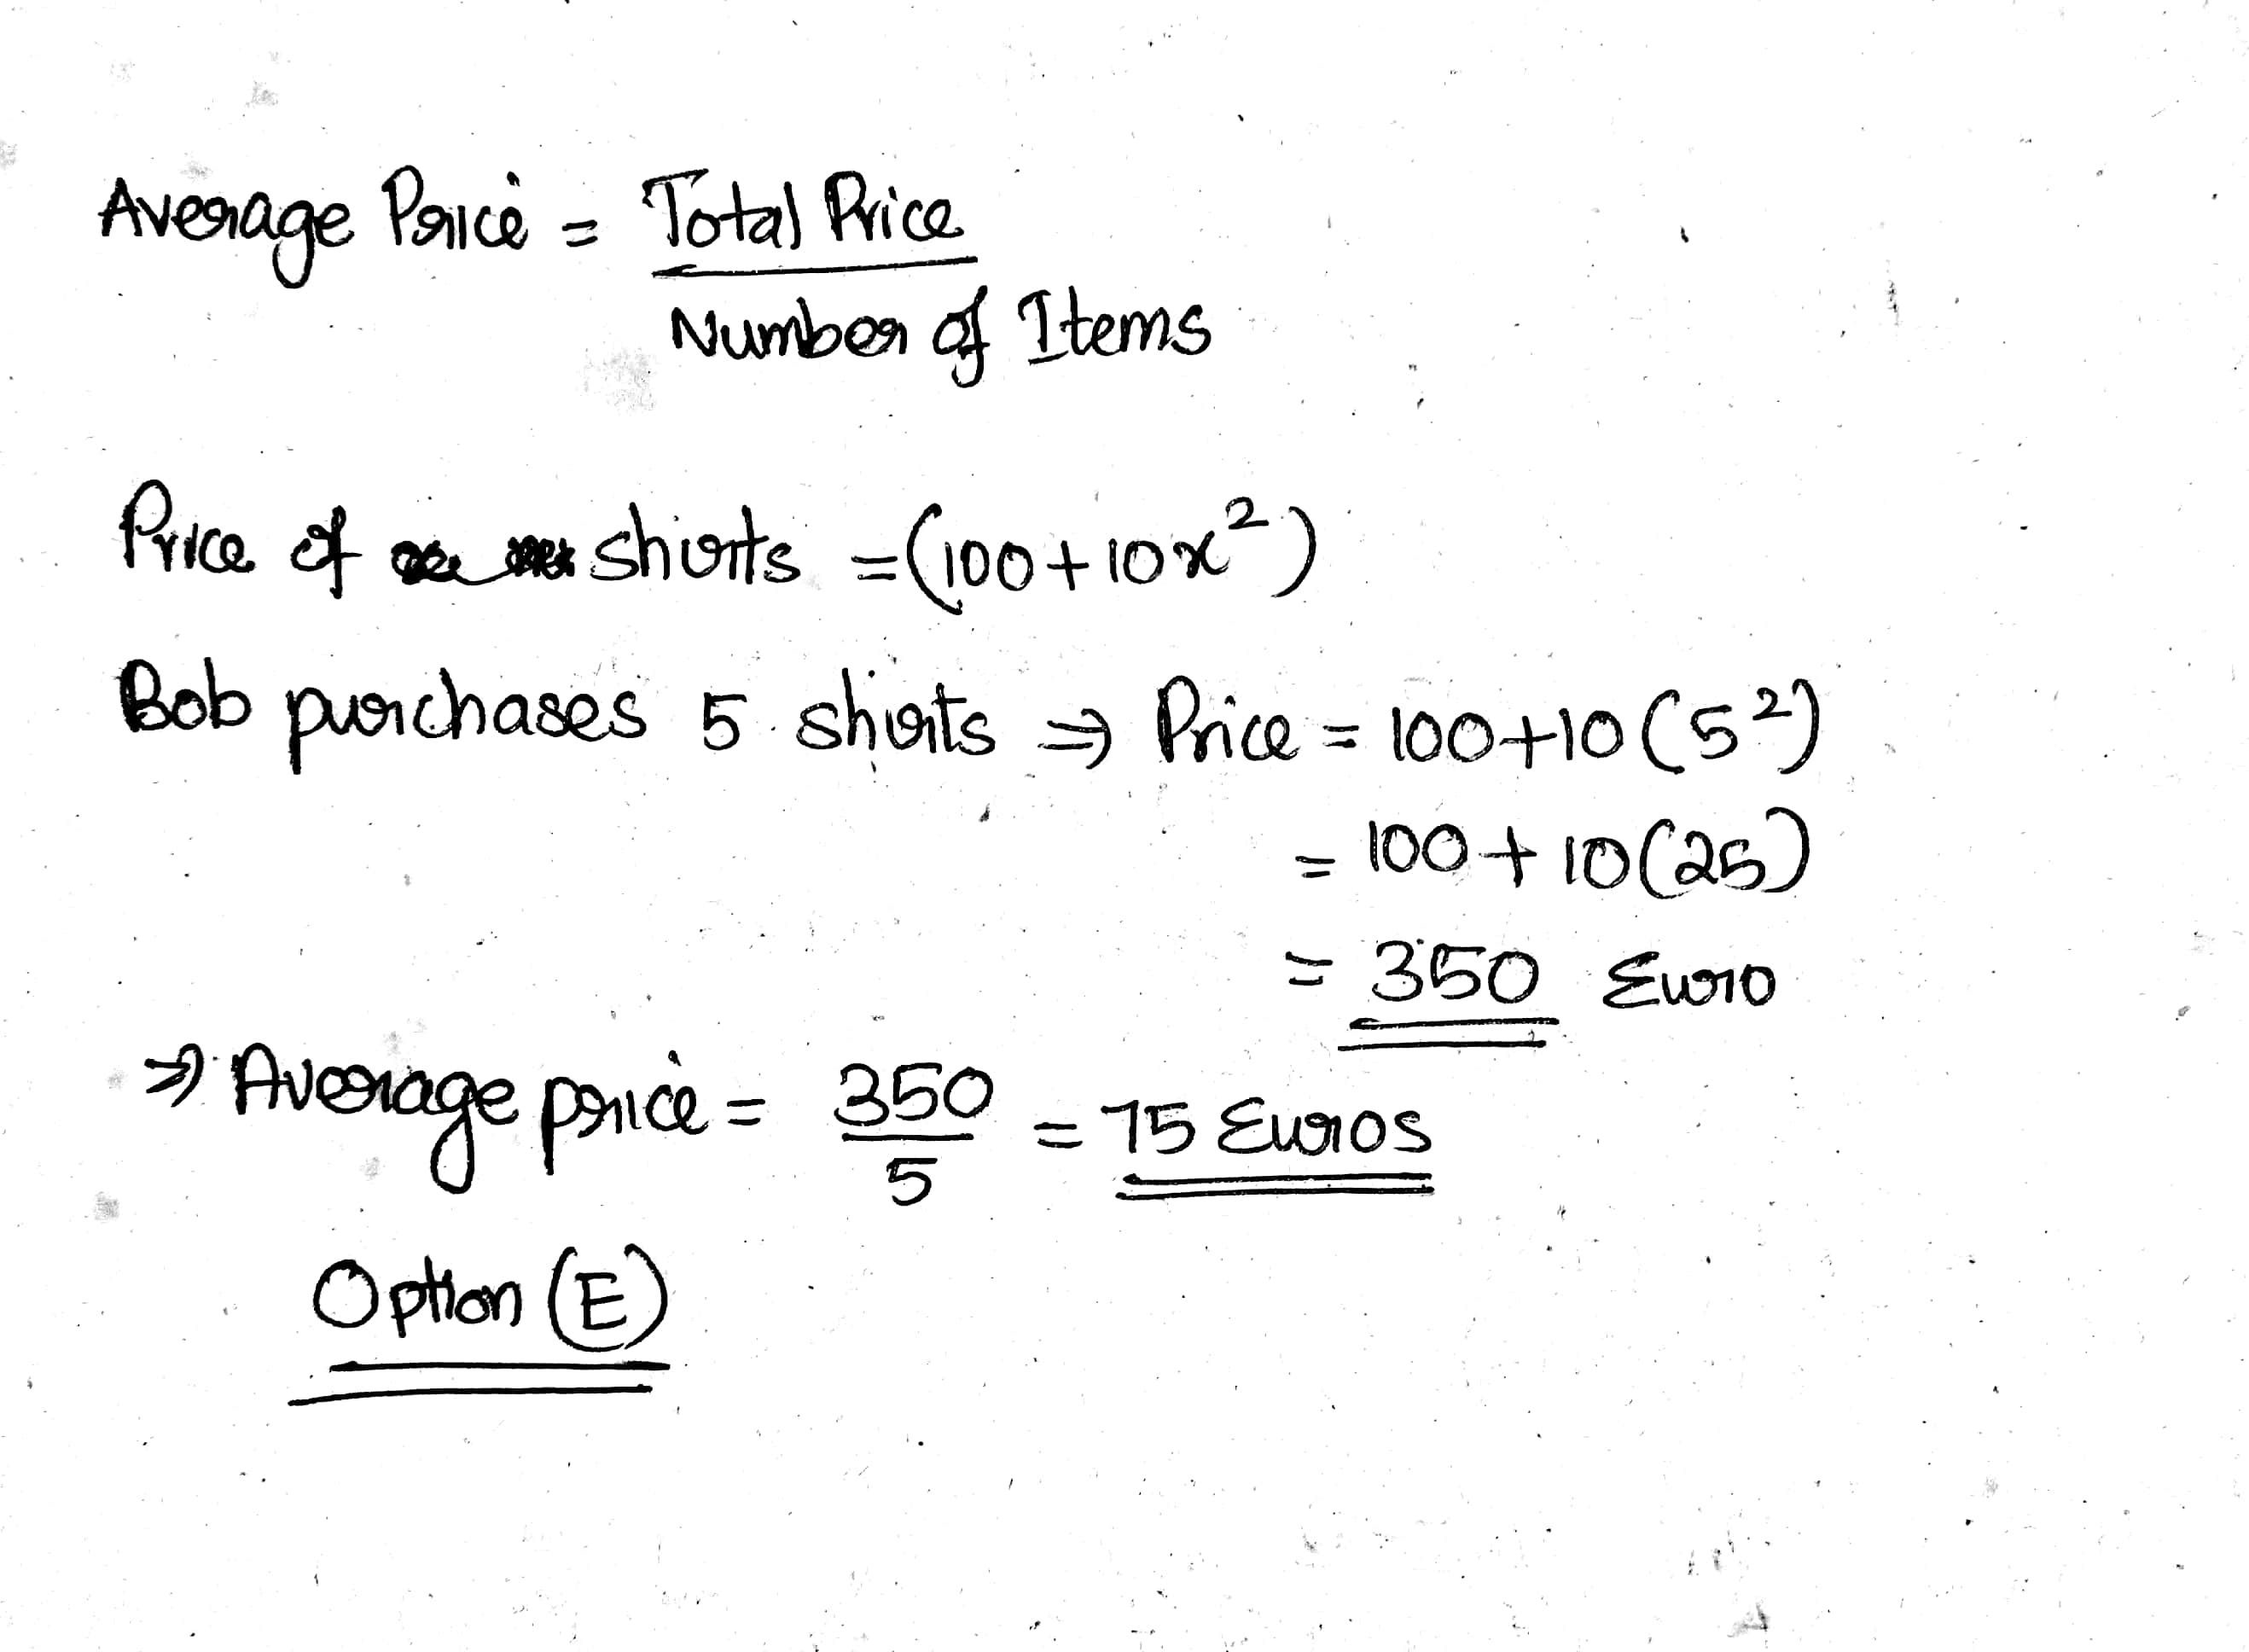 Average Price = Total Price
Number of Items
Price of shirts = (100+10x²)
Bob purchases 5 shirts ⇒ Price = 100+10(5²)
= 100+10(25)
= 350 Euro
⇒ Average price = 350/5 = 75 Euros
Option (E)